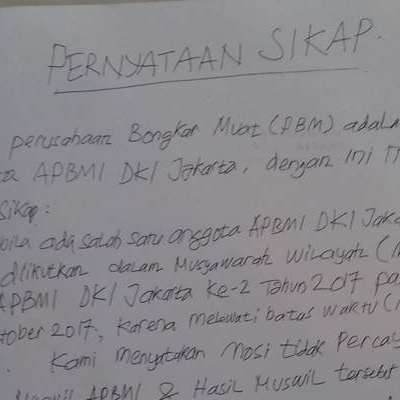 PERNYATAAN SIKAP.
perusahaan Bongkar Muat (PBM) adala
ta APBMI DKI Jakarta, dengan ini M
Sikap:
bila ada salah satu anggota APBMI DKI Jaka
diikutkan dalam Musyawarah wilayah (M
APBMI DKI Jakarta Ke-2 Tahun 2017 pa
tober 2017, karena melewati batas waktu (
Kami menyatakan mosi tidak percay
APBMI & Hasil Muswil tersebut